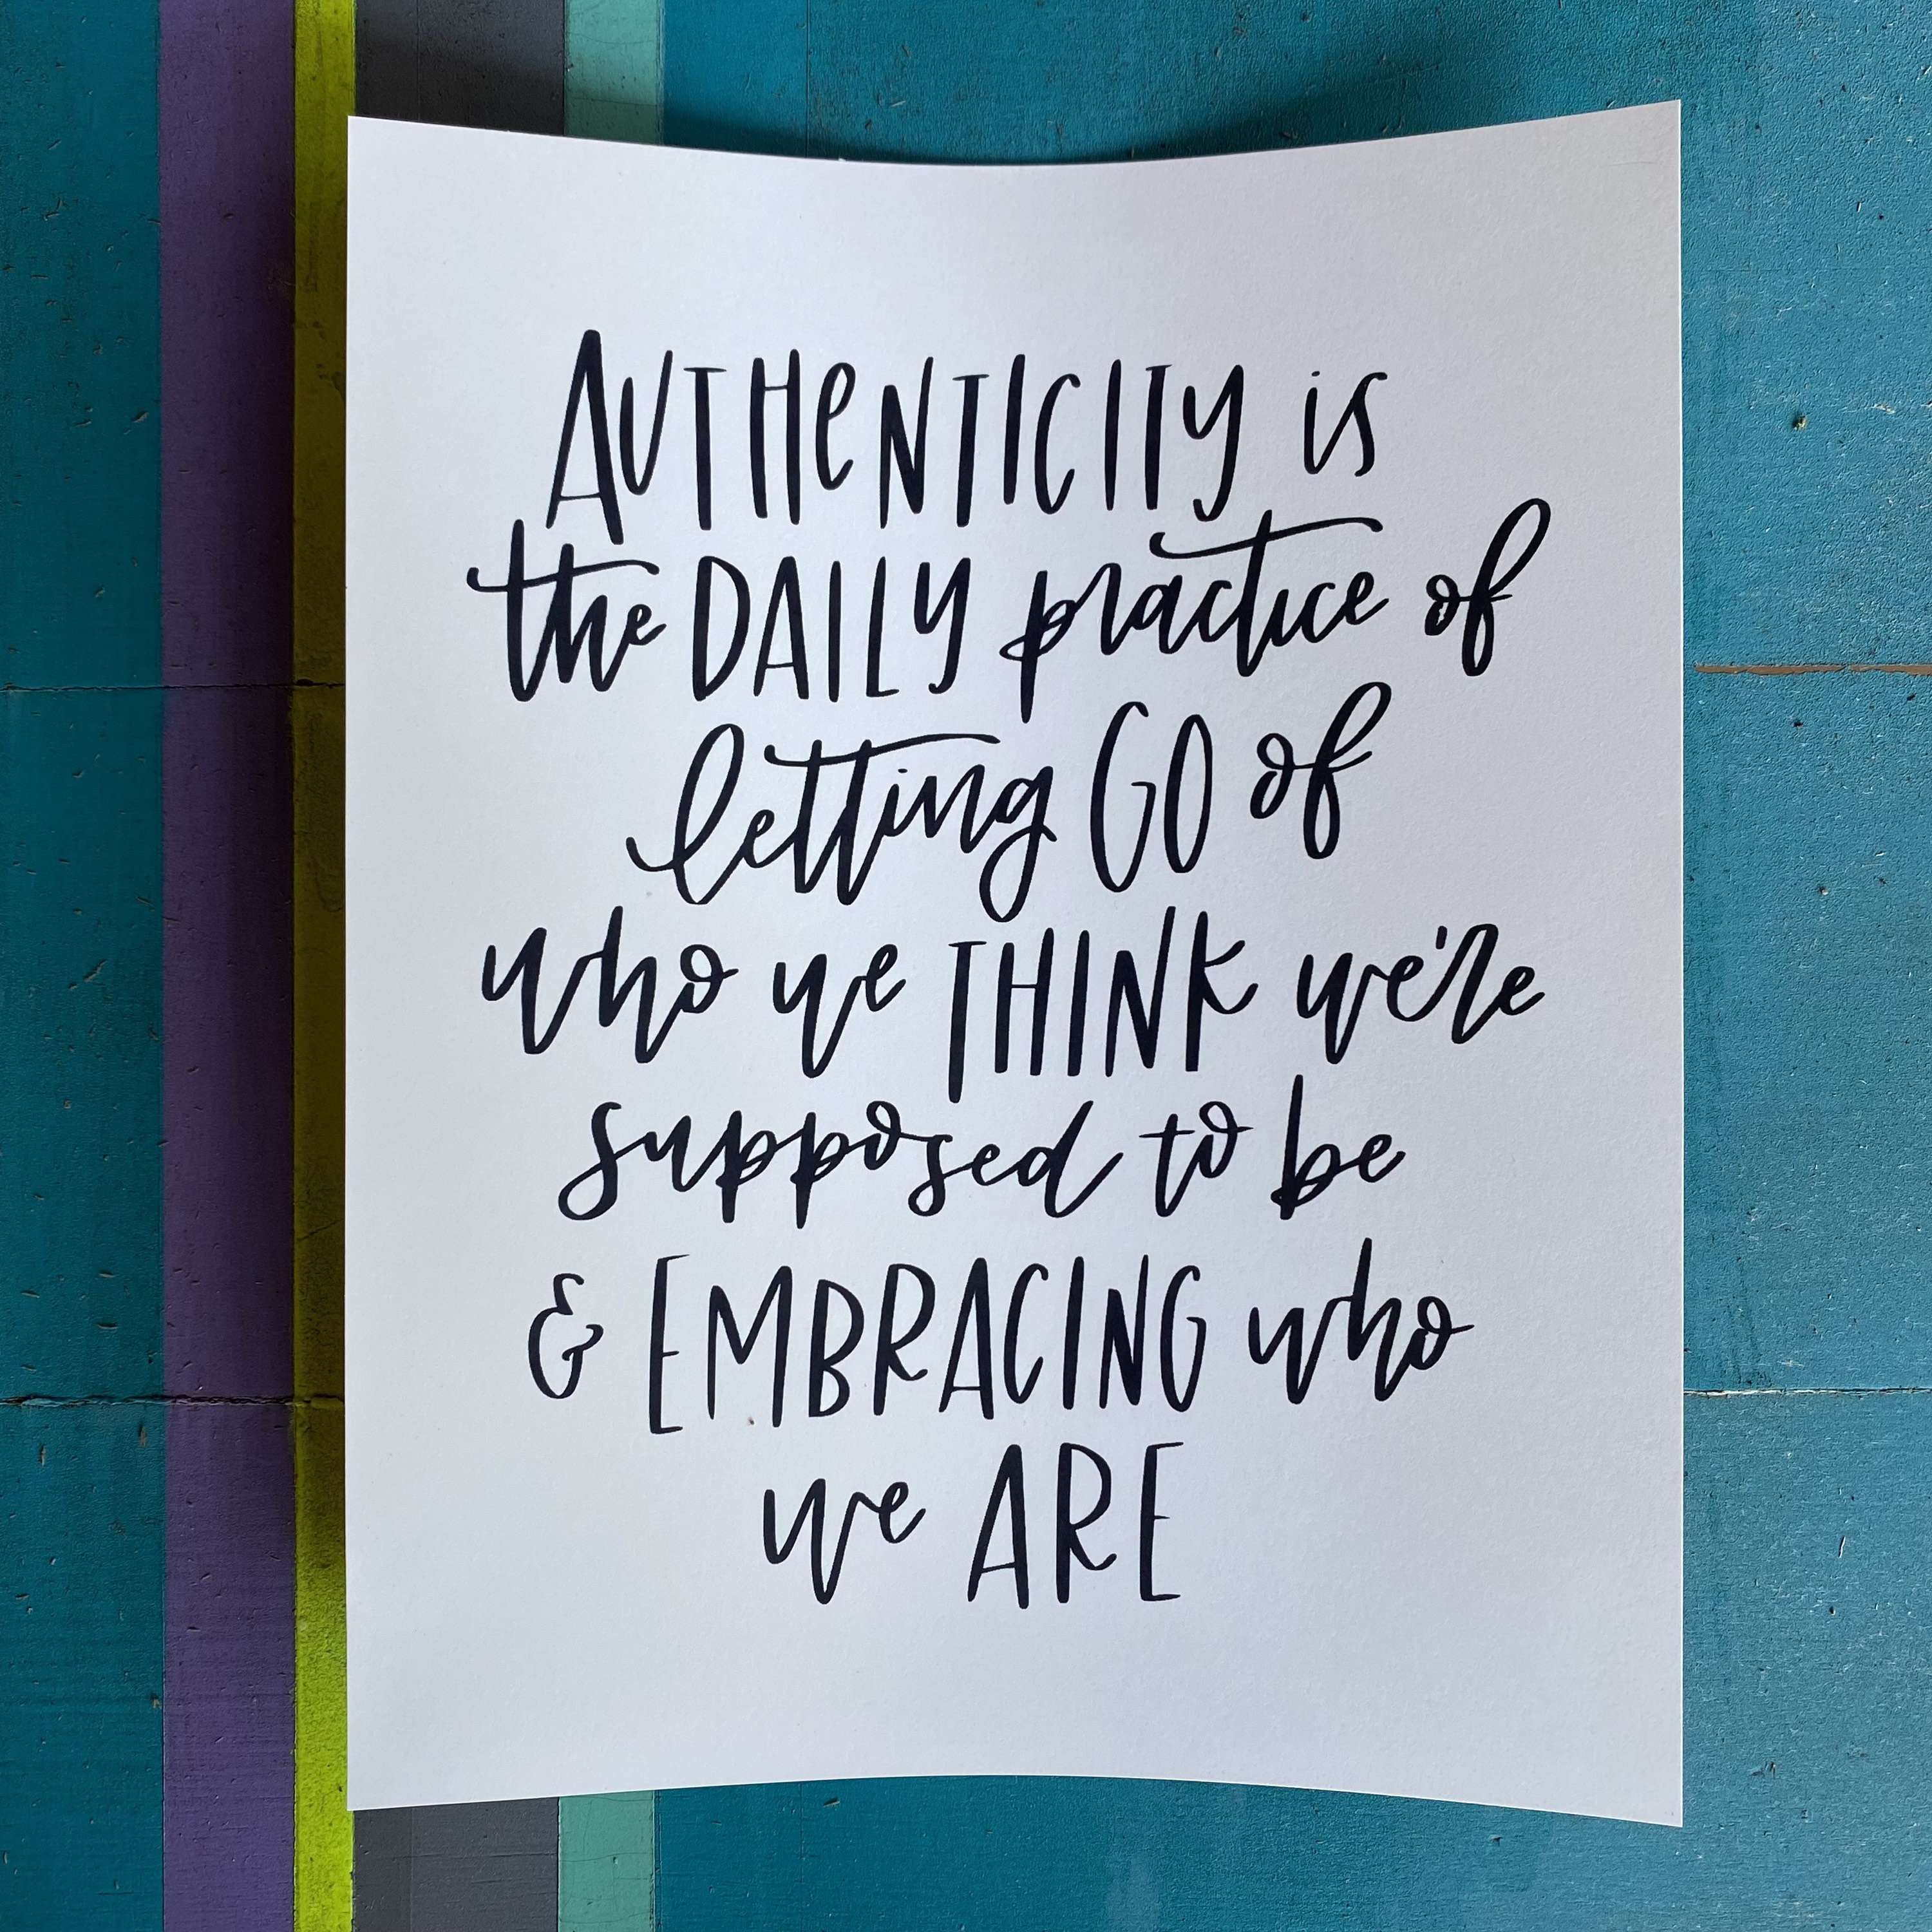 AUTHENTICITY is
the DAILY practice of
letting GO of
who we THINK we're
supposed to be
& EMBRACING who
we ARE